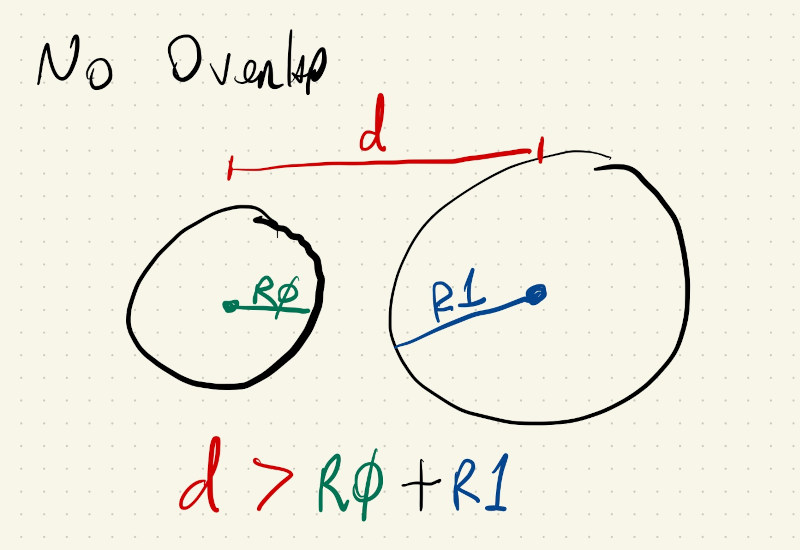 No Overlap
d
RØ
R1
d > RØ + R1